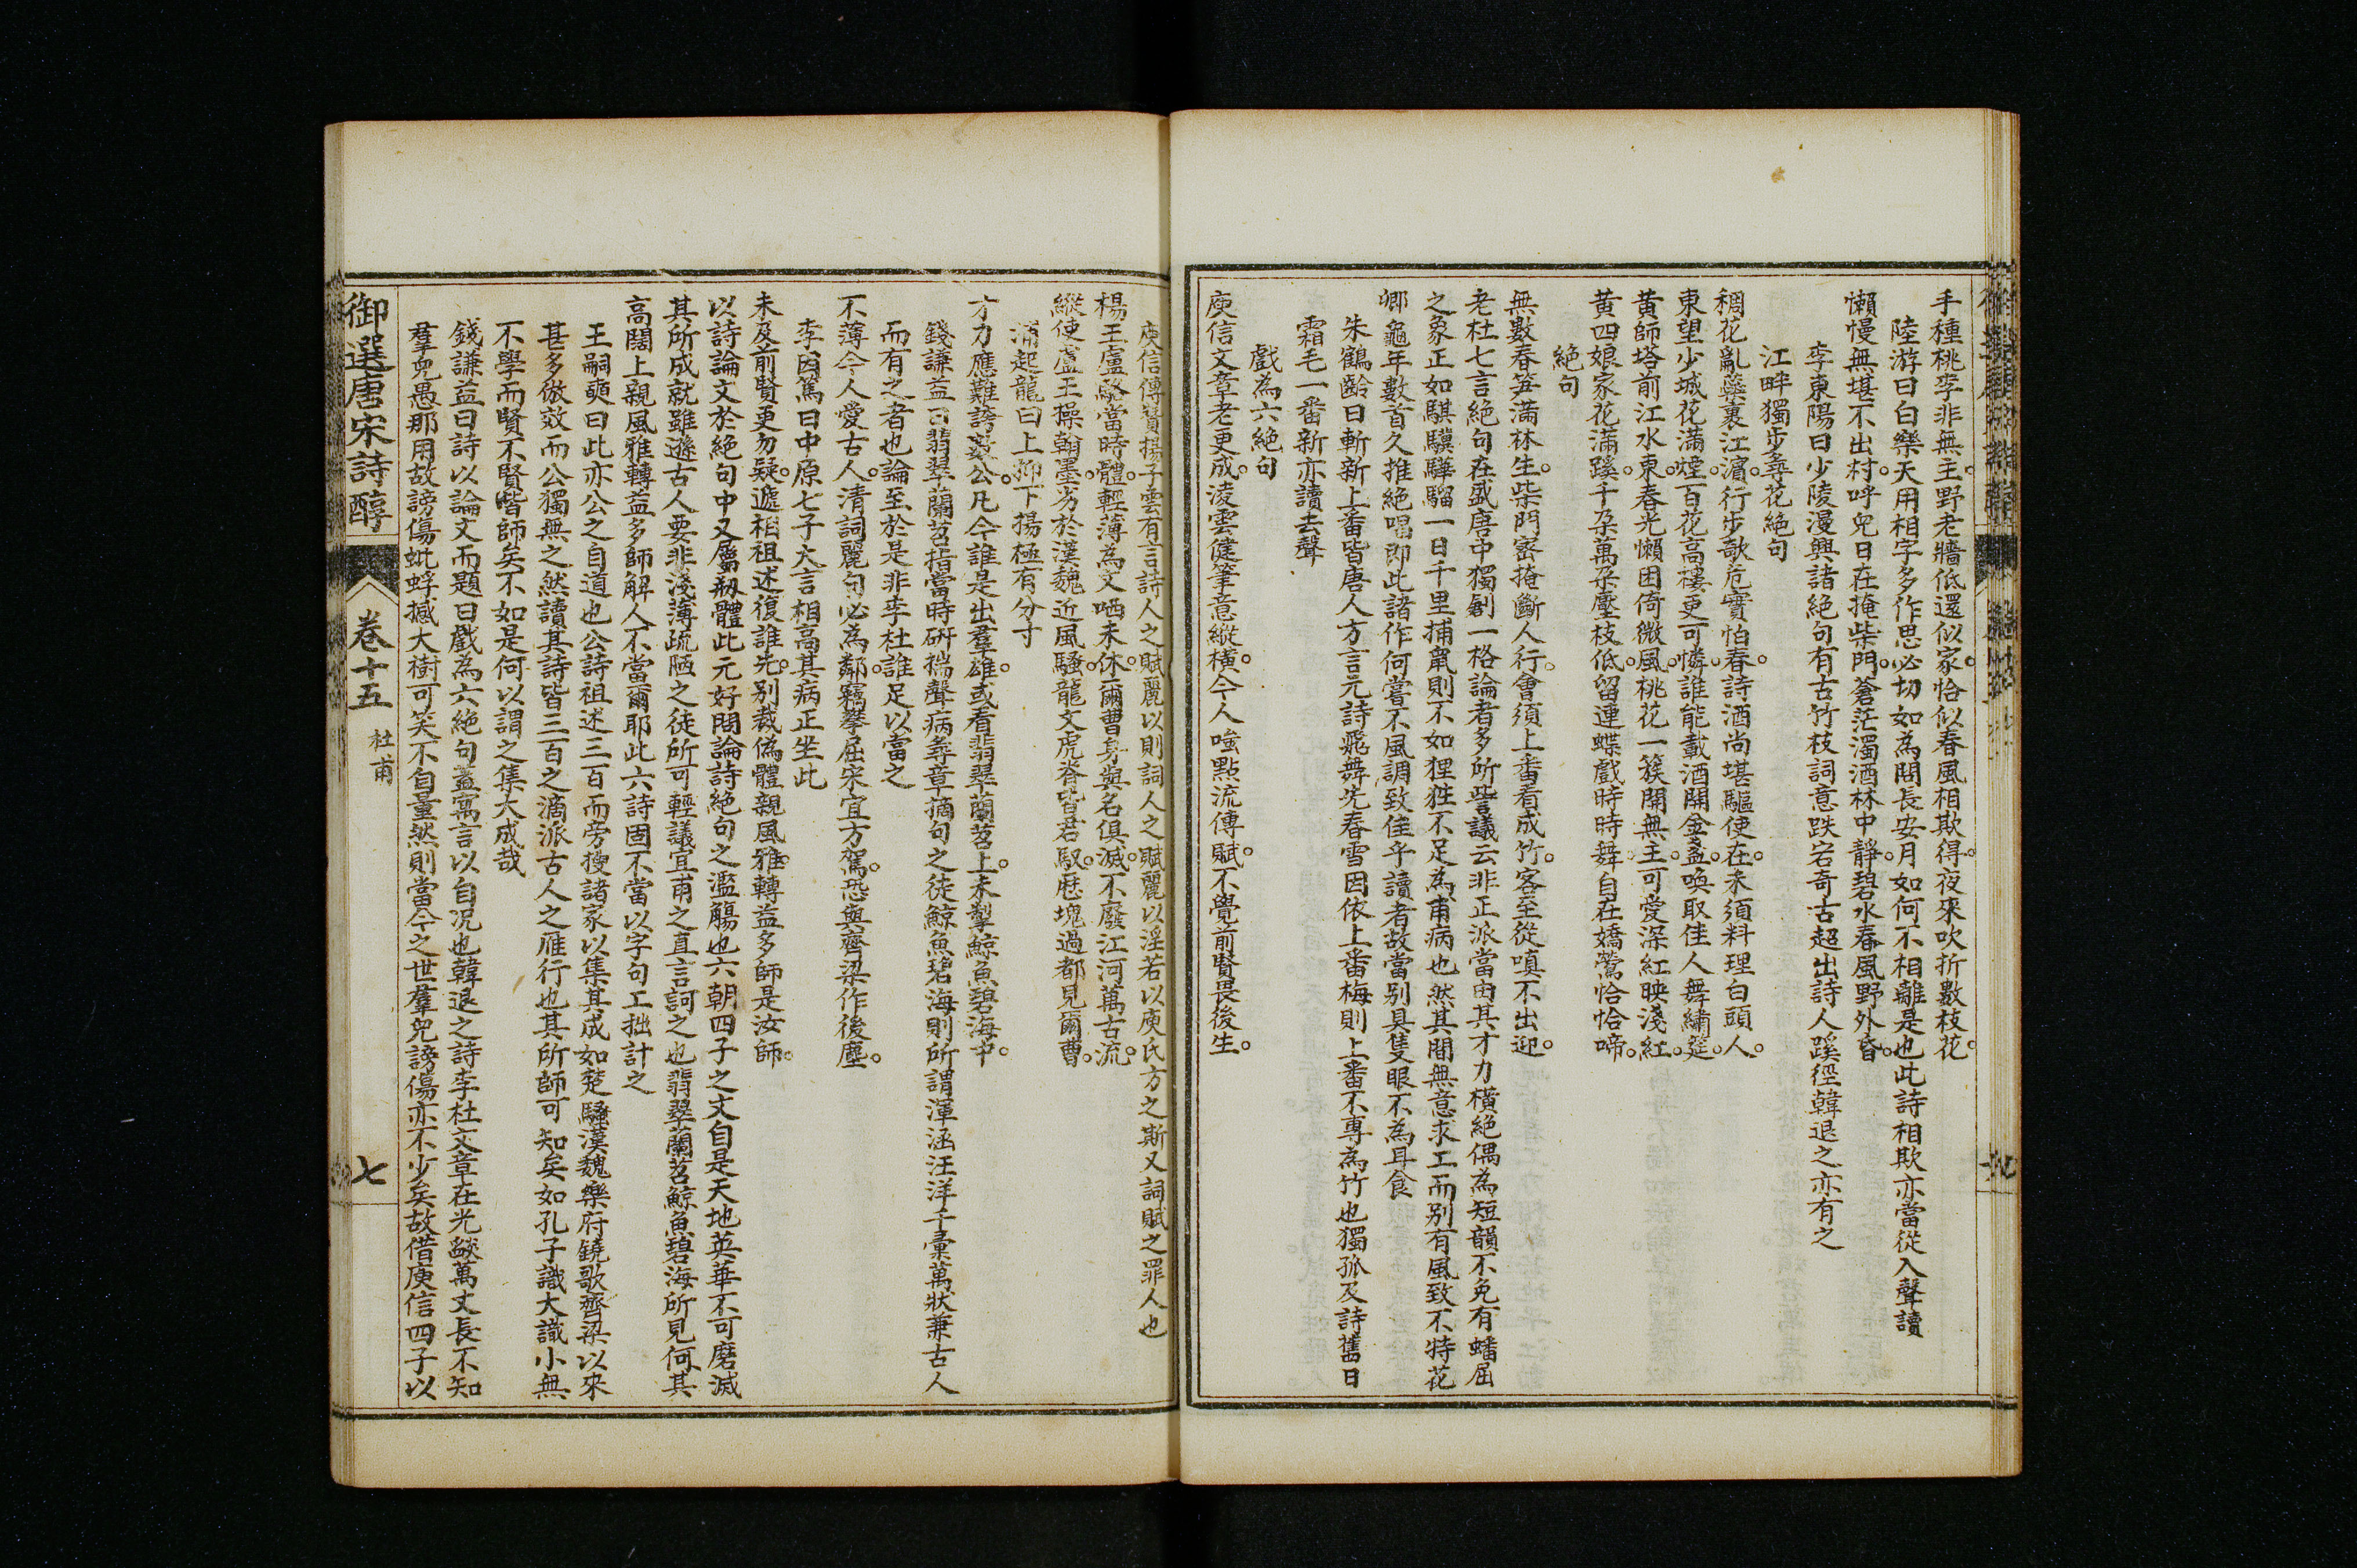 手種桃李非無主野老牆低還似家恰似春風相欺得夜來吹折數枝花
陸游曰白樂天用相字多作思必切如為問長安月如何不相離是也此詩相欺亦當從入聲讀
懶慢無堪不出村呼兒日在掩柴門蒼茫濁酒林中靜碧水春風野外昏
李東陽曰少陵漫興諸絕句有古竹枝詞意跌宕奇古超出詩人蹊徑韓退之亦有之
江畔獨步尋花絕句
稠花亂蘂裹江濵行步欹危實怕春詩酒尚堪驅使在未須料理白頭人
東望少城花滿煙百花高樓更可憐誰能載酒開金盞喚取佳人舞繡筵
黃師塔前江水東春光懶困倚微風桃花一簇開無主可愛深紅映淺紅
黃四娘家花滿蹊千朶萬朶壓枝低留連蝶戲時時舞自在嬌鶯恰恰啼
絕句
無數春笋滿林生柴門密掩斷人行會須上番看成竹客至從嗔不出迎
老杜七言絕句在盛唐中獨創一格論者多所訾議云非正派當由其才力橫絕偶為短韻不免有蟠屈
之象正如騏驥驊騮一日千里捕鼠則不如狸狌不足為甫病也然其間無意求工而別有風致不特花
卿龜年數首久推絕唱即此諸作何嘗不風調致佳乎讀者故當別具隻眼不為耳食
朱鶴齡曰斬新上番皆唐人方言元詩飛舞先春雪因依上番梅則上番不專為竹也獨孤及詩舊日
霜毛一番新亦讀去聲
戲為六絕句
庾信文章老更成淩雲健筆意縱橫今人嗤點流傳賦不覺前賢畏後生
庾信傳贊揚子雲有言詩人之賦麗以則詞人之賦麗以淫若以庾氏方之斯又詞賦之罪人也
楊王盧駱當時體輕薄為文哂未休爾曹身與名俱滅不廢江河萬古流
縱使盧王操翰墨劣於漢魏近風騷龍文虎脊皆君馭歷塊過都見爾曹
浦起龍曰上抑下揚極有分寸
才力應難誇數公凡今誰是出羣雄或看翡翠蘭苕上未掣鯨魚碧海中
錢謙益曰翡翠蘭苕指當時研揣聲病尋章摘句之徒鯨魚碧海則所謂渾涵汪洋千彙萬狀兼古人
而有之者也論至於是非李杜誰足以當之
不薄今人愛古人清詞麗句必為鄰竊攀屈宋宜方駕恐與齊梁作後塵
李因篤曰中原七子大言相高其病正坐此
未及前賢更勿疑遞相祖述復誰先別裁偽體親風雅轉益多師是汝師
以詩論文於絕句中又屬刱體此元好問論詩絕句之濫觴也六朝四子之文自是天地英華不可磨滅
其所成就雖遜古人要非淺薄疏陋之徒所可輕議宜甫之直言訶之也翡翠蘭苕鯨魚碧海所見何其
高闊上親風雅轉益多師解人不當爾耶此六詩固不當以字句工拙計之
王嗣奭曰此亦公之自道也公詩祖述三百而旁搜諸家以集其成如楚騷漢魏樂府鐃歌齊梁以來
甚多倣效而公獨無之然讀其詩皆三百之滴派古人之雁行也其所師可知矣如孔子識大識小無
不學而賢不賢皆師矣不如是何以謂之集大成哉
錢謙益曰詩以論文而題曰戲為六絕句蓋寓言以自況也韓退之詩李杜文章在光燄萬丈長不知
羣兒愚那用故謗傷蚍蜉撼大樹可笑不自量然則當今之世羣兒謗傷亦不少矣故借庾信四子以
御選唐宋詩醇
卷十五
杜甫
七